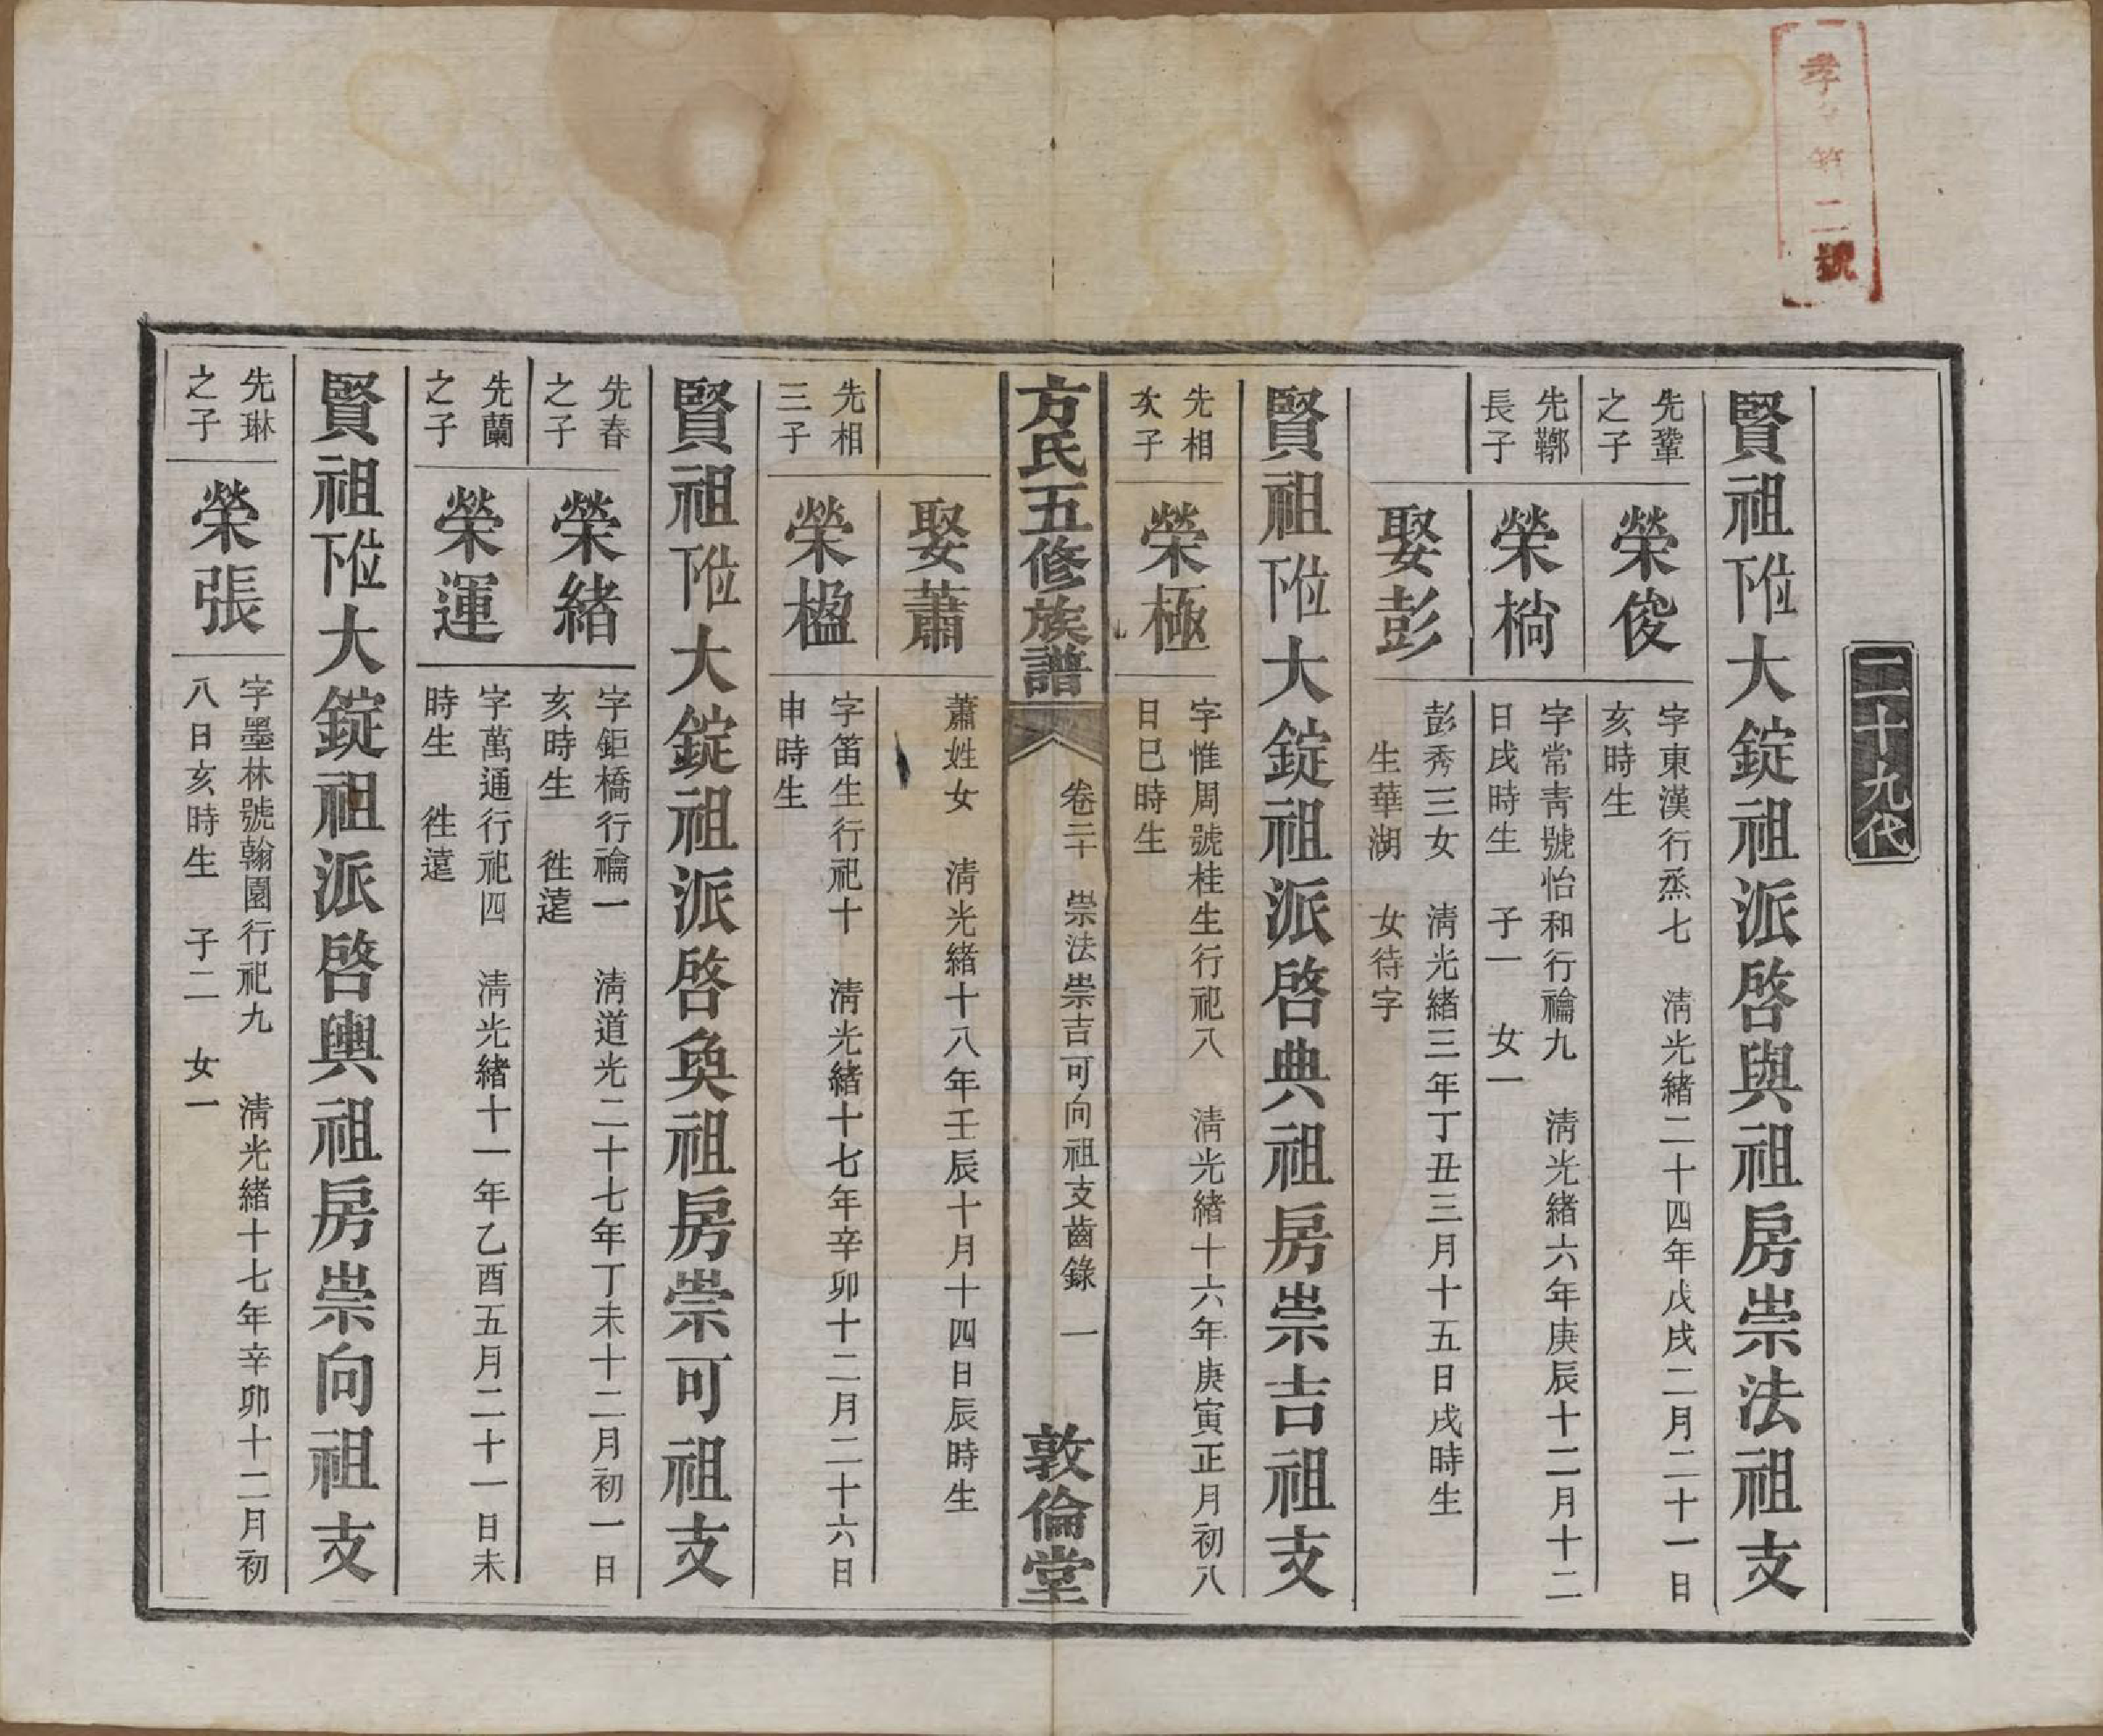 孝 第二號
二十九代
賢祖下位大錠祖派啓與祖房崇法祖支
先鞏之子
榮俊
字東漢行烝七 淸光緒二十四年戊戌二月二十一日
亥時生
先鄴長子
榮椭
字常靑號怡和行禴九 淸光緒六年庚辰十二月十二
日戌時生 子一 女一
娶彭
彭秀三女 淸光緒三年丁丑三月十五日戌時生
生華湖 女待字
賢祖下位大錠祖派啓典祖房崇吉祖支
先相次子
榮極
字惟周號桂生行祀八 淸光緒十六年庚寅正月初八
日巳時生
方氏五修族譜
卷二十 崇法崇吉可向祖支齒錄 一
敦倫堂
娶蕭
蕭姓女 淸光緒十八年壬辰十月十四日辰時生
先相三子
榮楹
字笛生行祀十 淸光緒十七年辛卯十二月二十六日
申時生
賢祖下位大錠祖派啓奐祖房崇可祖支
先春之子
榮緒
字鉅橋行禴一 淸道光二十七年丁未十二月初一日
亥時生 徃遠
先蘭之子
榮運
字萬通行祀四 淸光緒十一年乙酉五月二十一日未
時生 徃遠
賢祖下位大錠祖派啓輿祖房崇向祖支
先琳之子
榮張
字墨林號翰園行祀九 淸光緒十七年辛卯十二月初
八日亥時生 子二 女一